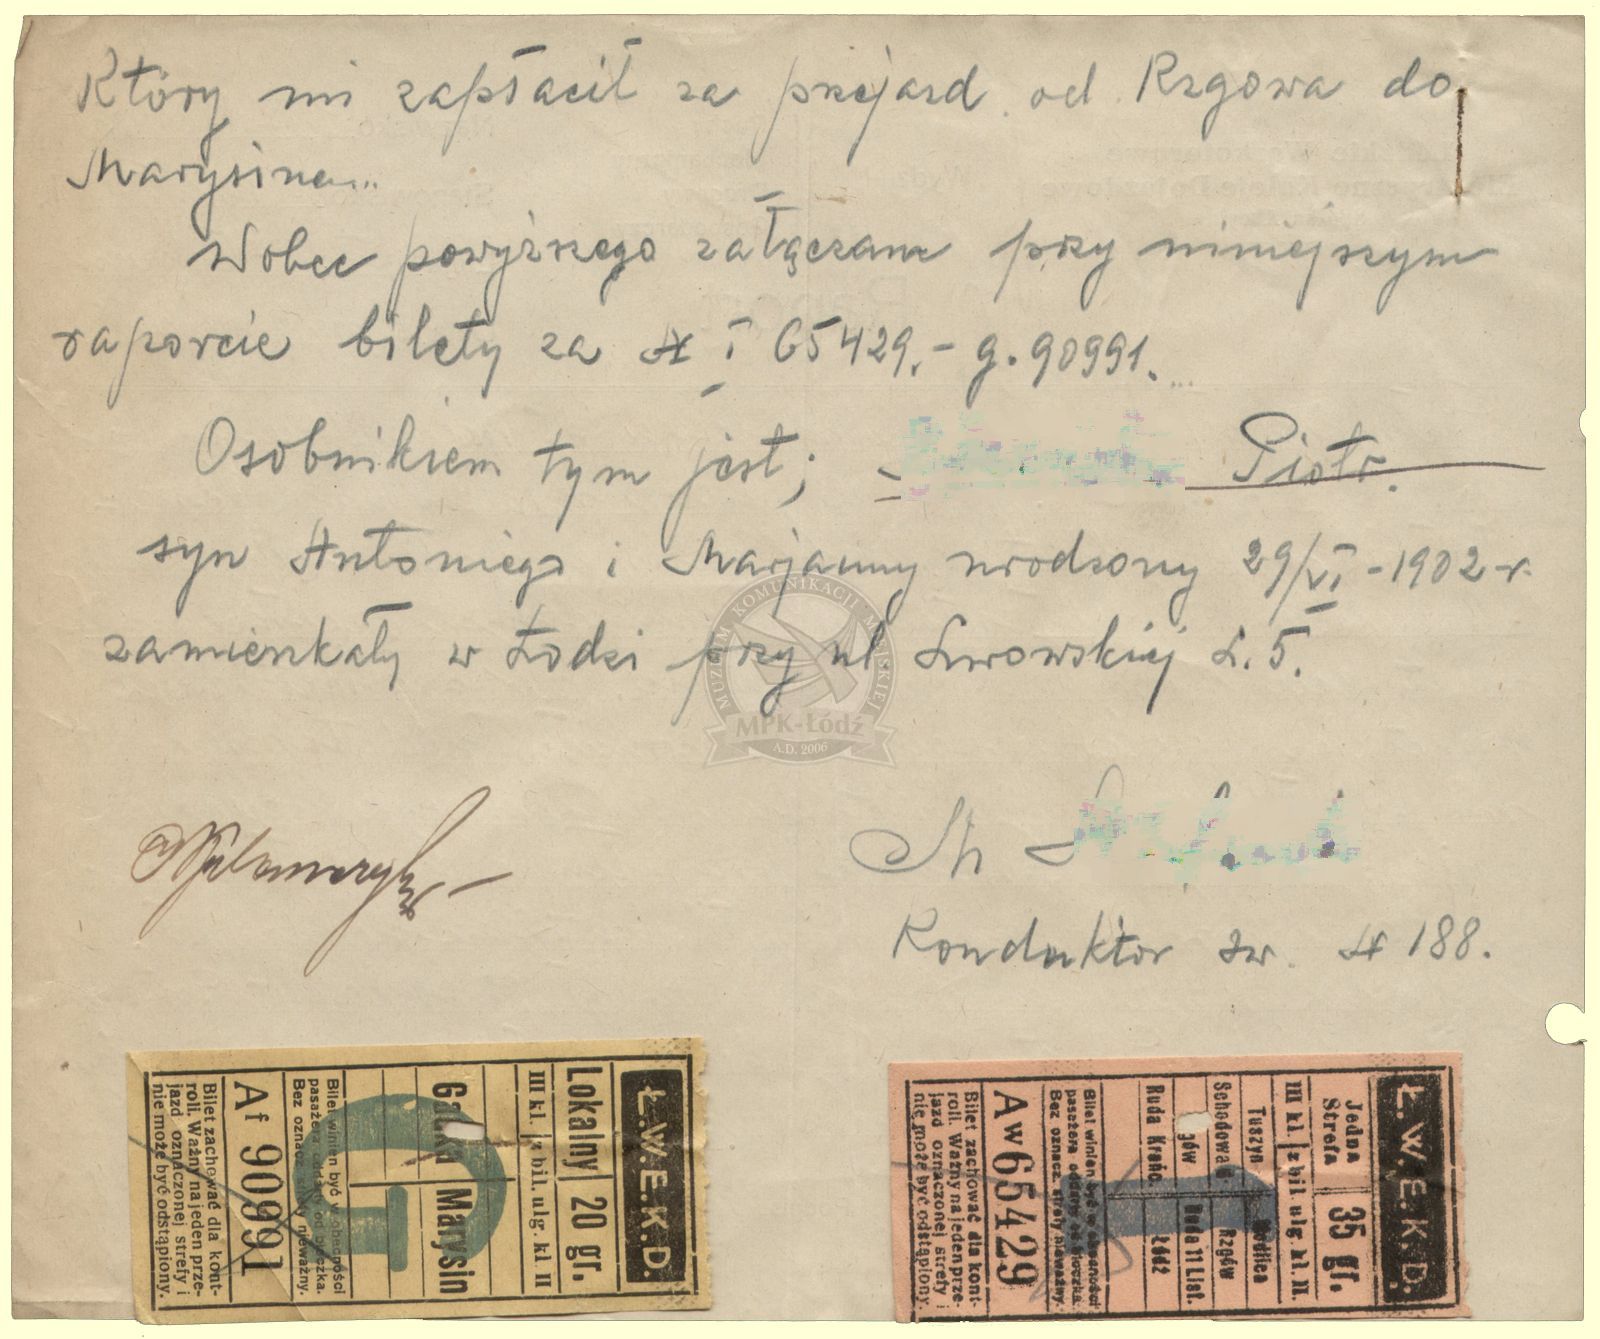 Który mi zapłacił za przejazd od Rzgowa do
Marysina...
Wobec powyższego załączam przy niniejszym
raporcie bilety za № I 65429.- g. 90991....
Osobnikiem tym jest; Piotr.
syn Antoniego i Marjanny urodzony 29/VI - 1902 r.
zamieszkały w Łodzi przy ul Lwowskiej L. 5.
MUZEUM KOMUNIKACJI MIEJSKIEJ
MPK-Łódź
A.D. 2006
St
Konduktor zw. № 188.
Ł.W.E.K.D.
Lokalny 20 gr.
III kl. z bil. ulg. kl II
Marysin
Bilet winien być w obecności
pasażera oddarty od bloczka.
Bez oznacz. nieważny.
Af 90991
Bilet zachować dla kont-
roli. Ważny na jeden prze-
jazd oznaczonej strefy i
nie może być odstąpiony.
Ł.W.E.K.D.
Jedna Strefa 35 gr.
III kl z bil. ulg. kl. II.
Tuszyn Modlica
Rzgów
gów Ruda 11 List.
Ruda Krańc. Łódź
Bilet winien być w obecności
pasażera oddarty od bloczka.
Bez oznacz. strefy nieważny.
Aw 65429
Bilet zachować dla kont-
roli. Ważny na jeden prze-
jazd oznaczonej strefy i
nie może być odstąpiony.